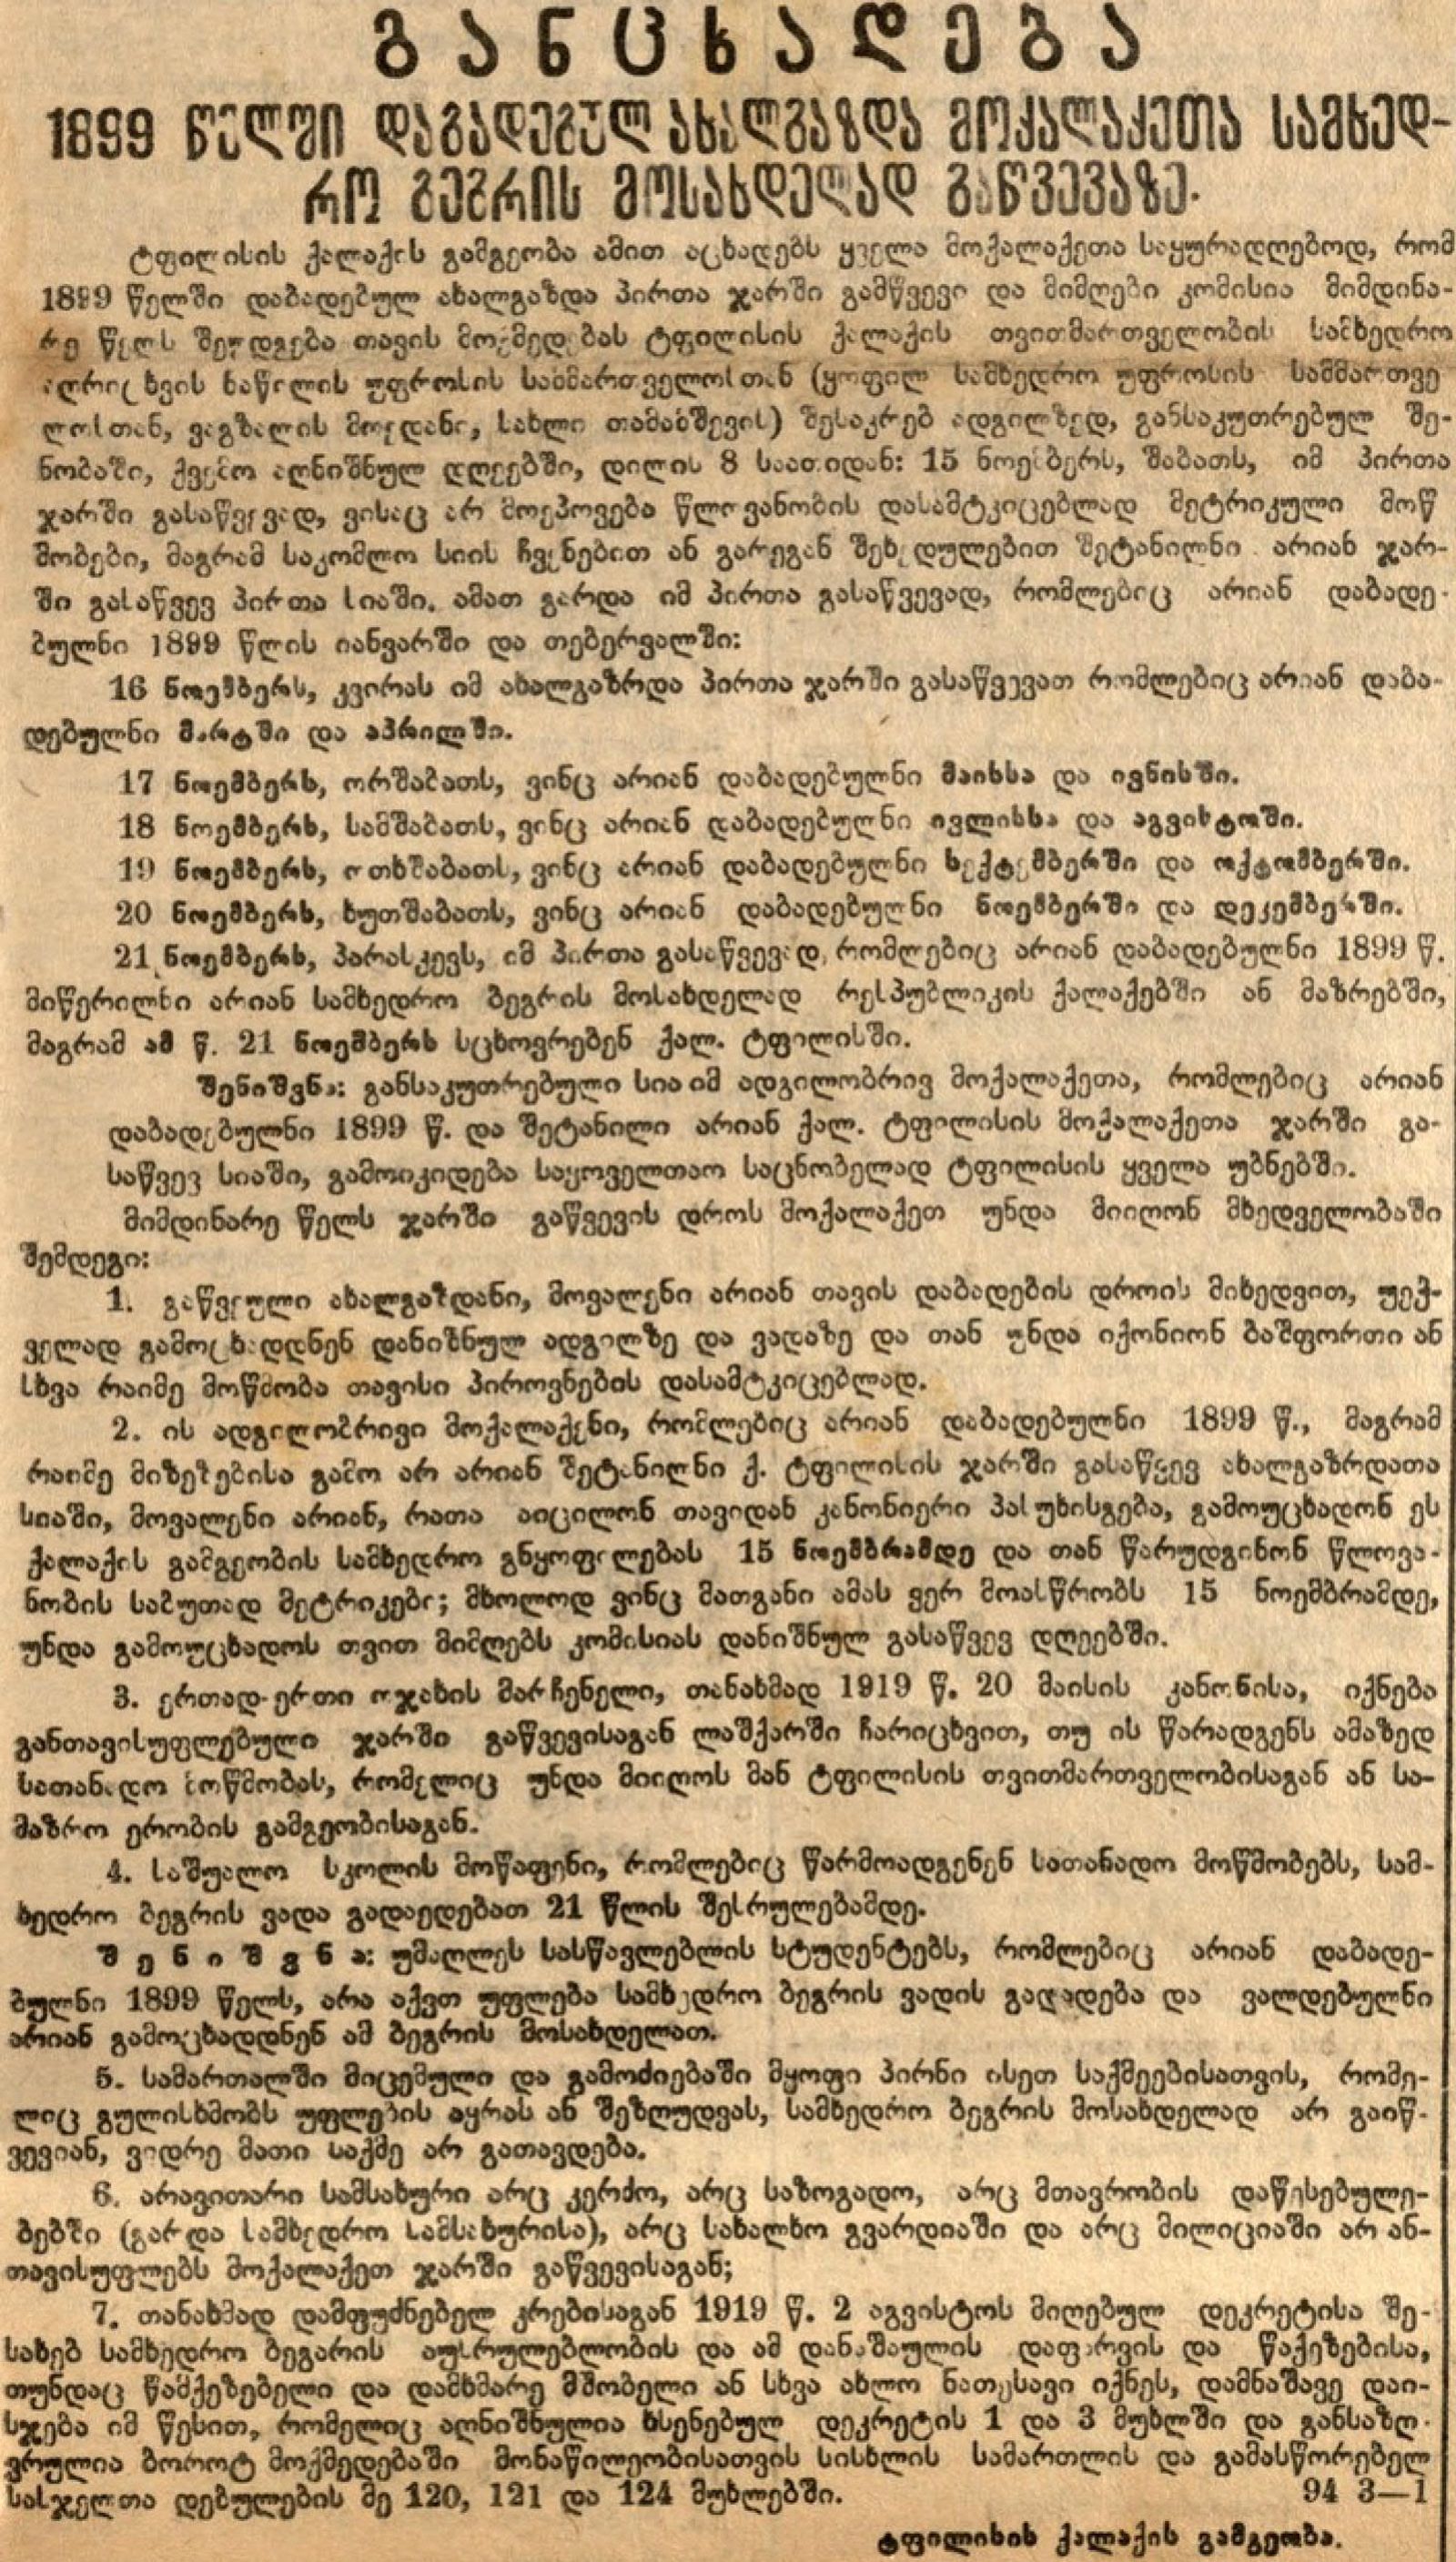 განცხადება
1899 წელში დაბადებულ ახალგაზდა მოქალაქეთა სამხედ-
რო ბეგრის მოსახდელად გაწვევაზე.
ტფილისის ქალაქის გამგეობა ამით აცხადებს ყველა მოქალაქეთა საყურადღებოდ, რომ
1899 წელში დაბადებულ ახალგაზდა პირთა ჯარში გამწვევი და მიმღები კომისია მიმდინა-
რე წელს შეუდგება თავის მოქმედებას ტფილისის ქალაქის თვითმართველობის სამხედრო
აღრიცხვის ნაწილის უფროსის სამმართველოსთან (ყოფილ სამხედრო უფროსის სამმართვე
ლოსთან, ვაგზალის მოედანი, სახლი თამამშევის) შესაკრებ ადგილზედ, განსაკუთრებულ შე-
ნობაში, ქვემო აღნიშნულ დღეებში, დილის 8 საათიდან: 15 ნოემბერს, შაბათს, იმ პირთა
ჯარში გასაწვევად, ვისაც არ მოეპოვება წლოვანობის დასამტკიცებლად მეტრიკული მოწ
მობები, მაგრამ საკომლო სიის ჩვენებით ან გარეგან შეხედულებით შეტანილნი არიან ჯარ-
ში გასაწვევ პირთა სიაში. ამათ გარდა იმ პირთა გასაწვევად, რომლებიც არიან დაბადე-
ბულნი 1899 წლის იანვარში და თებერვალში:
16 ნოემბერს, კვირას იმ ახალგაზრდა პირთა ჯარში გასაწვევათ რომლებიც არიან დაბა-
დებულნი მარტში და აპრილში.
17 ნოემბერს, ორშაბათს, ვინც არიან დაბადებულნი მაისსა და ივნისში.
18 ნოემბერს, სამშაბათს, ვინც არიან დაბადებულნი ივლისსა და აგვისტოში.
19 ნოემბერს, ოთხშაბათს, ვინც არიან დაბადებულნი სექტემბერში და ოქტომბერში.
20 ნოემბერს, ხუთშაბათს, ვინც არიან დაბადებულნი ნოემბერში და დეკემბერში.
21 ნოემბერს, პარასკევს, იმ პირთა გასაწვევად, რომლებიც არიან დაბადებულნი 1899 წ.
მიწერილნი არიან სამხედრო ბეგრის მოსახდელად რესპუბლიკის ქალაქებში ან მაზრებში,
მაგრამ ამ წ. 21 ნოემბერს სცხოვრებენ ქალ. ტფილისში.
შენიშვნა: განსაკუთრებული სია იმ ადგილობრივ მოქალაქეთა, რომლებიც არიან
დაბადებულნი 1899 წ. და შეტანილი არიან ქალ. ტფილისის მოქალაქეთა ჯარში გა-
საწვევ სიაში, გამოიკიდება საყოველთაო საცნობელად ტფილისის ყველა უბნებში.
მიმდინარე წელს ჯარში გაწვევის დროს მოქალაქეთ უნდა მიიღონ მხედველობაში
შემდეგი:
1. გაწვეული ახალგაზდანი, მოვალენი არიან თავის დაბადების დროის მიხედვით, უეჭ-
ველად გამოცხადდნენ დანიშნულ ადგილზე და ვადაზე და თან უნდა იქონიონ პაშფორთი ან
სხვა რაიმე მოწმობა თავისი პიროვნების დასამტკიცებლად.
2. ის ადგილობრივი მოქალაქენი, რომლებიც არიან დაბადებულნი 1899 წ., მაგრამ
რაიმე მიზეზებისა გამო არ არიან შეტანილნი ქ. ტფილისის ჯარში გასაწვევ ახალგაზრდათა
სიაში, მოვალენი არიან, რათა აიცილონ თავიდან კანონიერი პასუხისგება, გამოუცხადონ ეს
ქალაქის გამგეობის სამხედრო განყოფილებას 15 ნოემბრამდე და თან წარუდგინონ წლოვა-
ნობის საბუთად მეტრიკები; მხოლოდ ვინც მათგანი ამას ვერ მოასწრობს 15 ნოემბრამდე,
უნდა გამოუცხადოს თვით მიმღებს კომისიას დანიშნულ გასაწვევ დღეებში.
3. ერთად-ერთი ოჯახის მარჩენელი, თანახმად 1919 წ. 20 მაისის კანონისა, იქნება
განთავისუფლებული ჯარში გაწვევისაგან ლაშქარში ჩარიცხვით, თუ ის წარადგენს ამაზედ
სათანადო მოწმობას, რომელიც უნდა მიიღოს მან ტფილისის თვითმართველობისაგან ან სა-
მაზრო ერობის გამგეობისაგან.
4. საშუალო სკოლის მოწაფენი, რომლებიც წარმოადგენენ სათანადო მოწმობებს, სამ-
ხედრო ბეგრის ვადა გადაედებათ 21 წლის შესრულებამდე.
შენიშვნა: უმაღლეს სასწავლებლის სტუდენტებს, რომლებიც არიან დაბადე-
ბულნი 1899 წელს, არა აქვთ უფლება სამხედრო ბეგრის ვადის გადადება და ვალდებულნი
არიან გამოცხადდნენ ამ ბეგრის მოსახდელათ.
5. სამართალში მიცემული და გამოძიებაში მყოფი პირნი ისეთ საქმეებისათვის, რომე-
ლიც გულისხმობს უფლების აყრას ან შეზღუდვას, სამხედრო ბეგრის მოსახდელად არ გაიწ-
ვევიან, ვიდრე მათი საქმე არ გათავდება.
6. არავითარი სამსახური არც კერძო, არც საზოგადო, არც მთავრობის დაწესებულე-
ბებში (გარდა სამხედრო სამსახურისა), არც სახალხო გვარდიაში და არც მილიციაში არ ან-
თავისუფლებს მოქალაქეთ ჯარში გაწვევისაგან;
7. თანახმად დამფუძნებელ კრებისაგან 1919 წ. 2 აგვისტოს მიღებულ დეკრეტისა შე-
სახებ სამხედრო ბეგარის აუსრულებლობის და ამ დანაშაულის დაფარვის და წაქეზებისა,
თუნდაც წამქეზებელი და დამხმარე მშობელი ან სხვა ახლო ნათესავი იქნეს, დამნაშავე დაი-
სჯება იმ წესით, რომელიც აღნიშნულია ხსენებულ დეკრეტის 1 და 3 მუხლში და განსაზღ-
ვრულია ბოროტ მოქმედებაში მონაწილეობისათვის სისხლის სამართლის და გამასწორებელ
სასჯელთა დებულების მე 120, 121 და 124 მუხლებში. 94 3—1
ტფილისის ქალაქის გამგეობა.